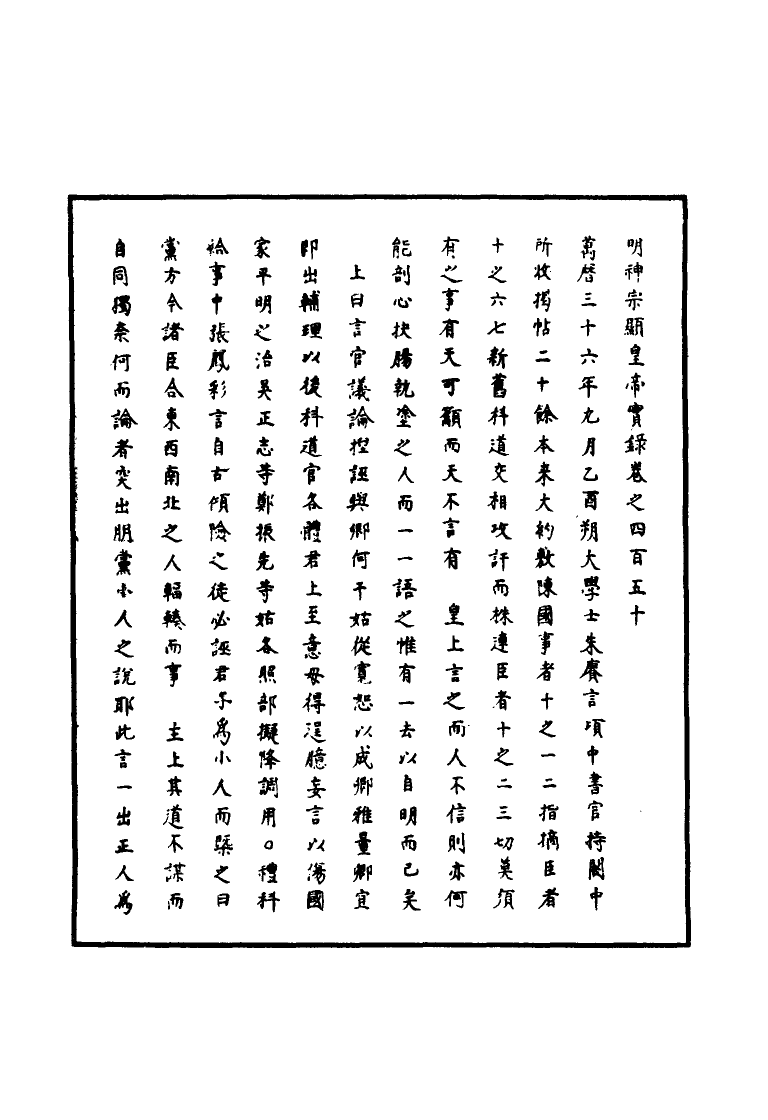 明神宗顯皇帝實錄卷之四百五十
萬曆三十六年九月乙酉朔大學士朱賡言頃中書官持閣中
所收揭帖二十餘本來大約敷陳國事者十之一二指摘臣者
十之六七新舊科道交相攻訐而株連臣者十之二三切莫須
有之事有天可籲而天不言有　皇上言之而人不信則亦何
能剖心抉腸執塗之人而一一語之惟有一去以自明而已矣
上曰言官議論挰誣與卿何干姑從寬恕以成卿雅量卿宜
即出輔理以後科道官各體君上至意毋得逞臆妄言以傷國
家平明之治吳正志等鄭振先等姑各照部擬降調用○禮科
給事中張鳳彩言自古傾險之徒必誣君子為小人而槩之曰
黨方今諸臣合東西南北之人輻輳而事　主上其道不謀而
自同獨柰何而論者突出朋黨小人之說耶此言一出正人為